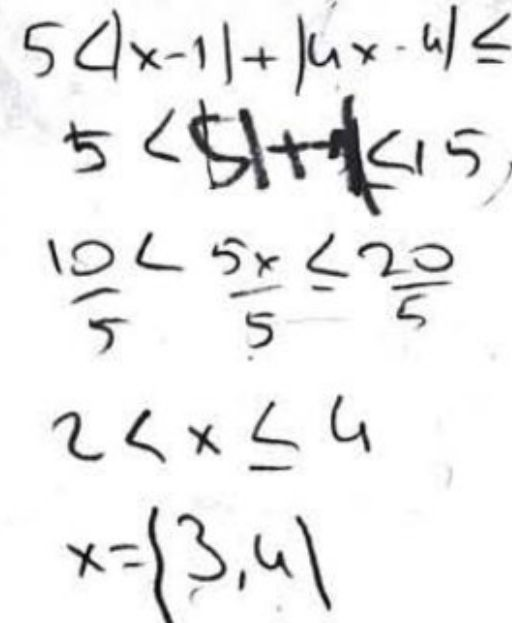 5<|x-1|+|4x-4|≤
5<5|+|≤15
10/5 < 5x/5 ≤ 20/5
2<x≤4
x={3,4}